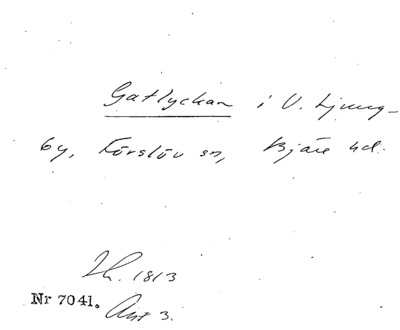 Gatlyckan i V. Ljung-
by, Förslöv sn, Bjäre hd.
Lh. 1813
Nr 7041. Akt 3.